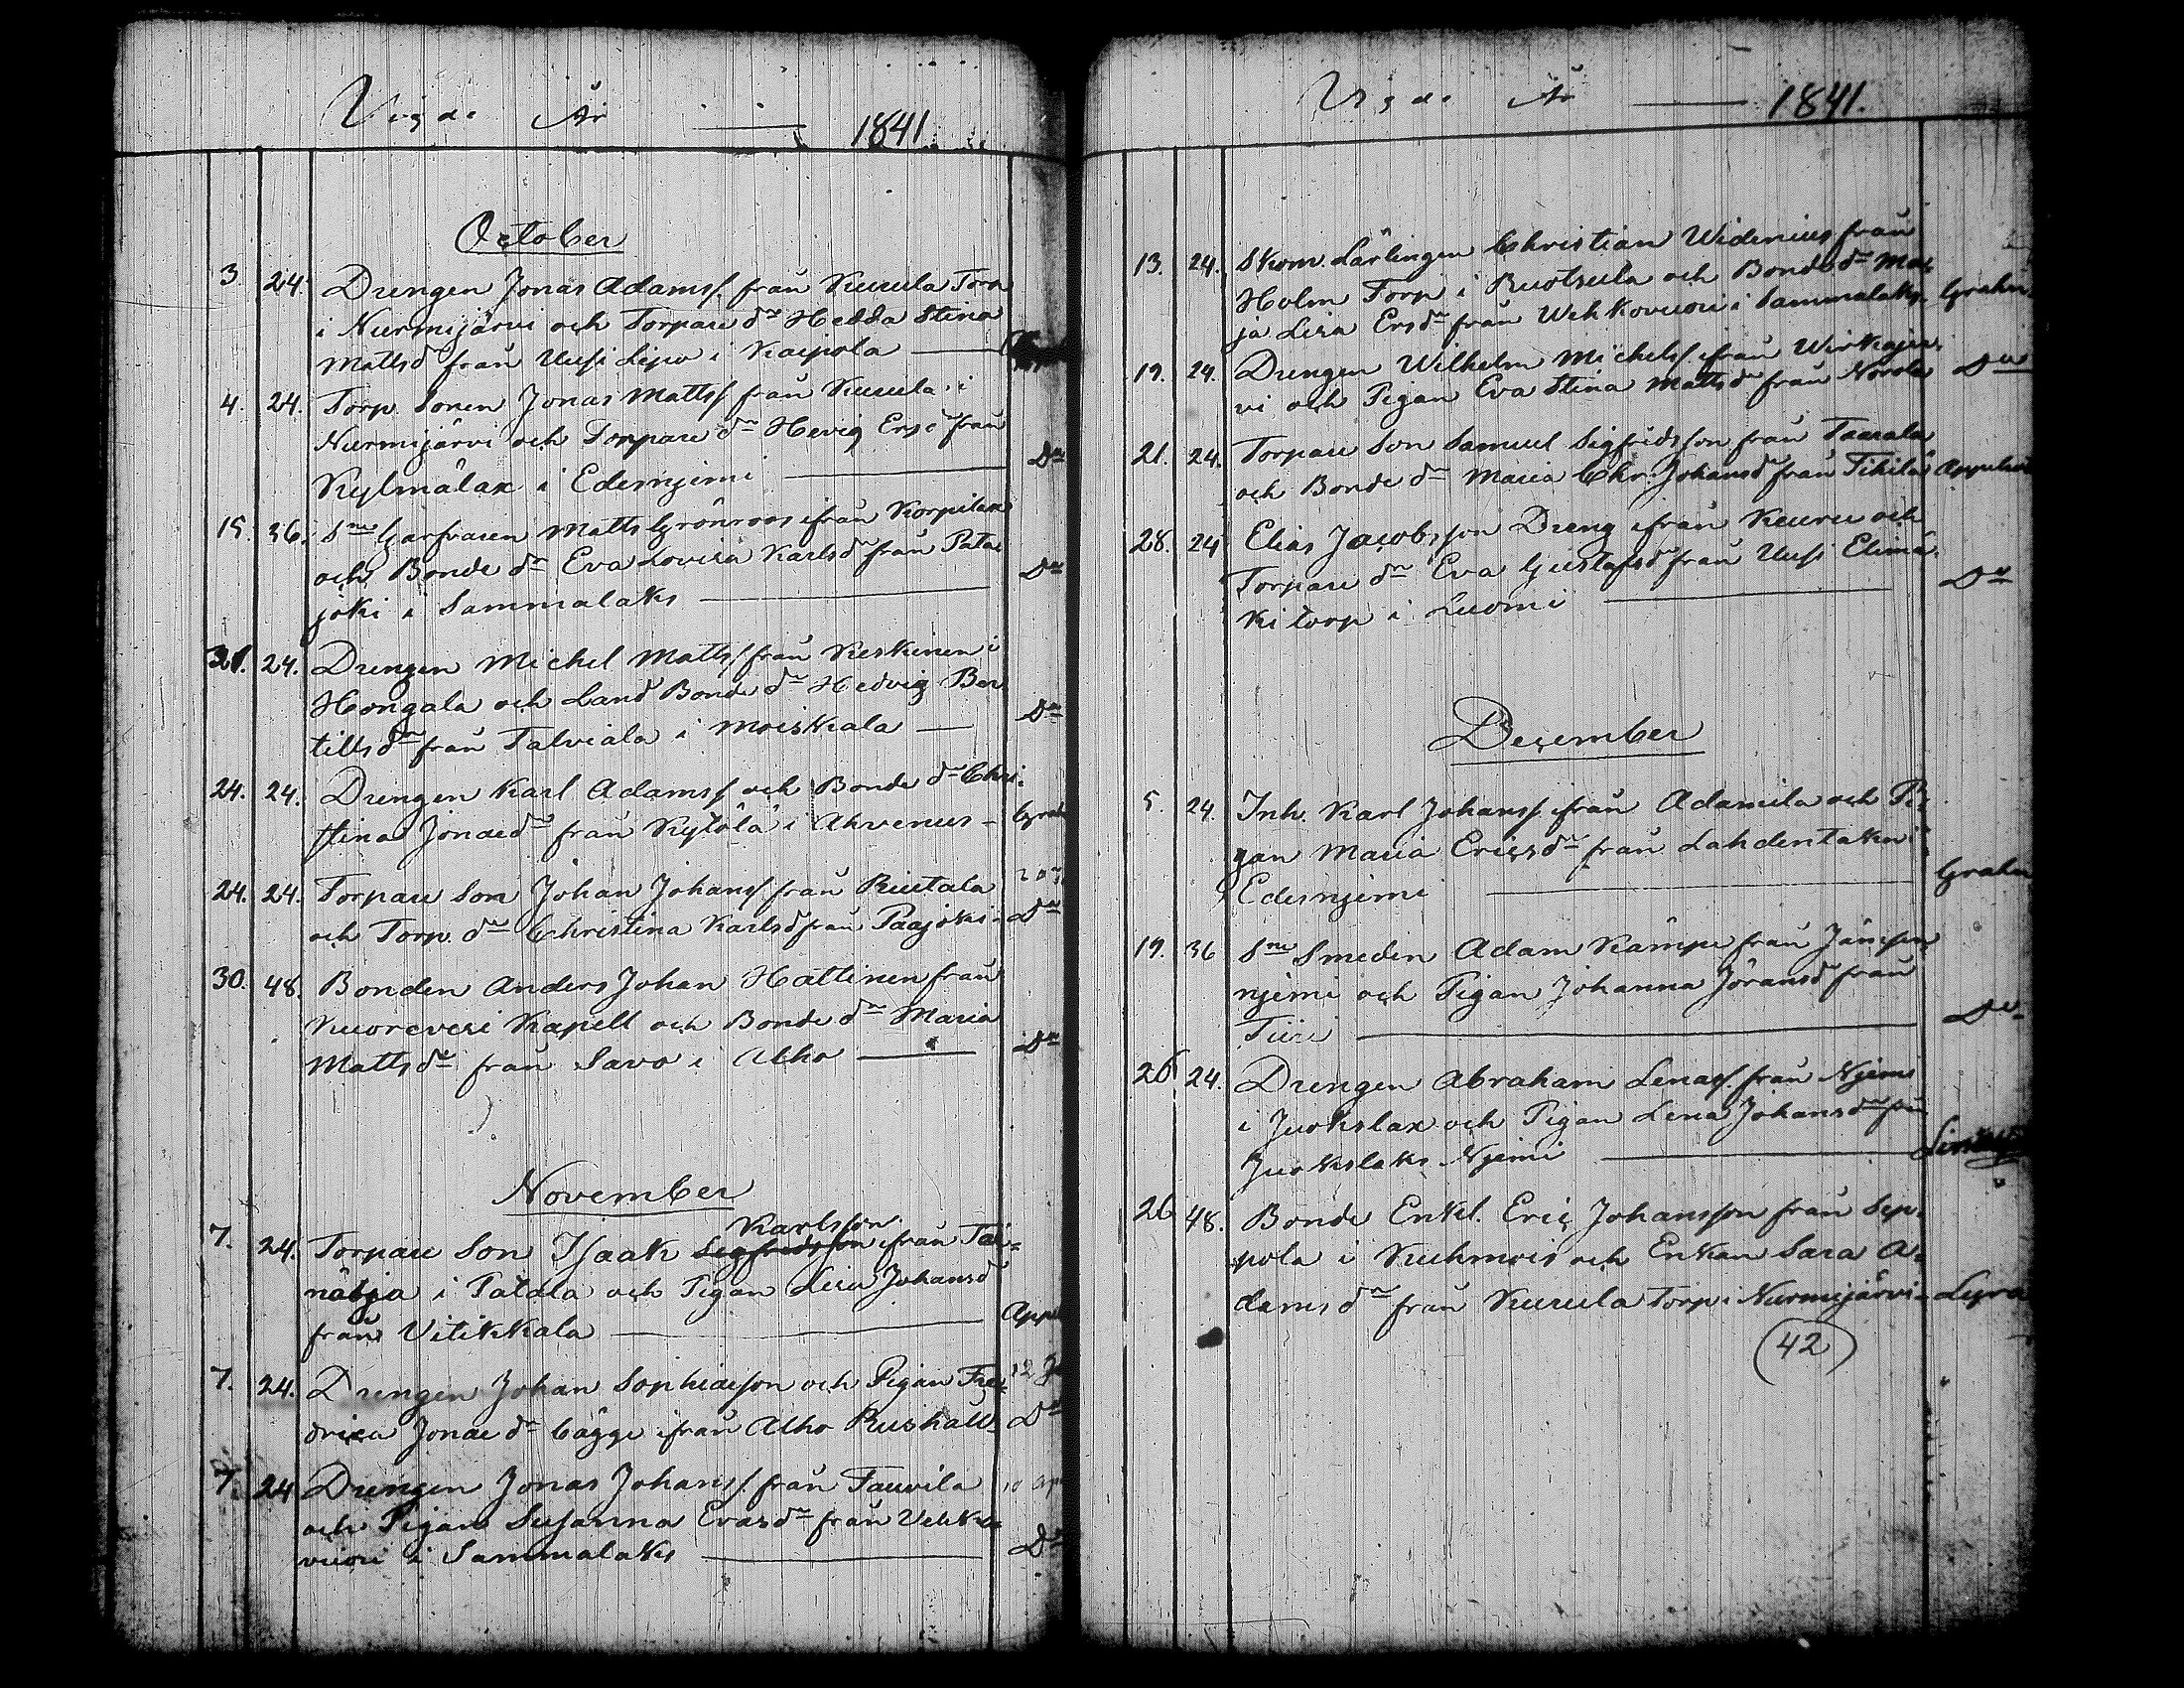 Vigde År — 1841
October
3. 24. Drengen Jonas Adamss. från Kurula Torp
i Nurmijärvi och Torpare dr Hedda Stina
Mattsdr från Uusi Lipo i Kaipola —
4. 24. Torp. Sonen Jonas Mattss. från Kurula i
Nurmijärvi och Torpare dr Hevig Ersd från
Kylmälax i Edesnjemi — Do
15. 36. Sne Garfvaren Matts Grönroos ifrån Korpilax
och Bonde dr Eva Lovisa Karlsdr från Pata
joki i Sammalaks — Do
21. 24. Drengen Michel Mattss. från Keskinen i
Hongola och Land Bonde dr Hedvig Ber
tillsdr från Talviala i Moiskala — Do
24. 24. Drengen Karl Adamss. och Bonde dr Chri-
stina Jonaedr från Kytölä i Ahvenus - Grah
24. 24. Torpare Son Johan Johanss. från Riutala
och Torp. dr Christina Karlsd från Paajoki - Do
30. 48. Bonden Anders Johan Hattinen från
Kuorevesi Kapell och Bonde dr Maria
Mattsdr från Savo i Alho — Do
November
Karlsson
7. 24. Torpare Son Isaak Sigfridsson ifrån Tai-
nätja i Patala och Pigan Lisa Johansd
från Vitikkala — Appe
7. 24. Drengen Johan Sophiaeson och Pigan Fre-
drica Jonae dr Cägge ifrån Alho Rusthåll Do
7. 24 Drengen Jonas Johanss. från Tauvila
och Pigan Susanna Evasdr från Vehko
vuori i Sammalaks — Do
Vigde År — 1841.
13. 24. Skom. Lärlingen Christian Widenius från
Holm Torp i Ruotsula och Bonde dr Mar
ja Lisa Ersdr från Wehkovuori i Sammalaks. Grahn
19. 24. Drengen Wilhelm Michelss. ifrån Wirkajer-
vi och Pigan Eva Stina Mattsdr från Norola Do
21. 24. Torpare Son Samuel Sigfridsson från Taurala
och Bonde dr Maria Chr. Johansd från Tihilä
28. 24 Elias Jacobsson Dreng ifrån Keuru och
Torpare dr Eva Gustafsdr från Uusi Elimä
ki torp i Luomi — Do
December
5. 24. Inh. Karl Johanss. ifrån Adamila och Pi-
gan Maria Ericsdr från Lahdentaka i
Edesnjemi — Grahn
19. 36 Sne Smeden Adam Kämpe från Jämsen
njemi och Pigan Johanna Jöransd från
Tiiri — Do
26 24. Drengen Abraham Lenaes. från Njemi
i Juokslax och Pigan Lena Johansdr frn
Juokslaks Njemi —
26 48. Bonde Enkl. Eric Johansson från Sep-
pola i Kuhmois och Enkan Sara A-
damsdr från Kurula torp i Nurmijärvi - Lyra
(42)